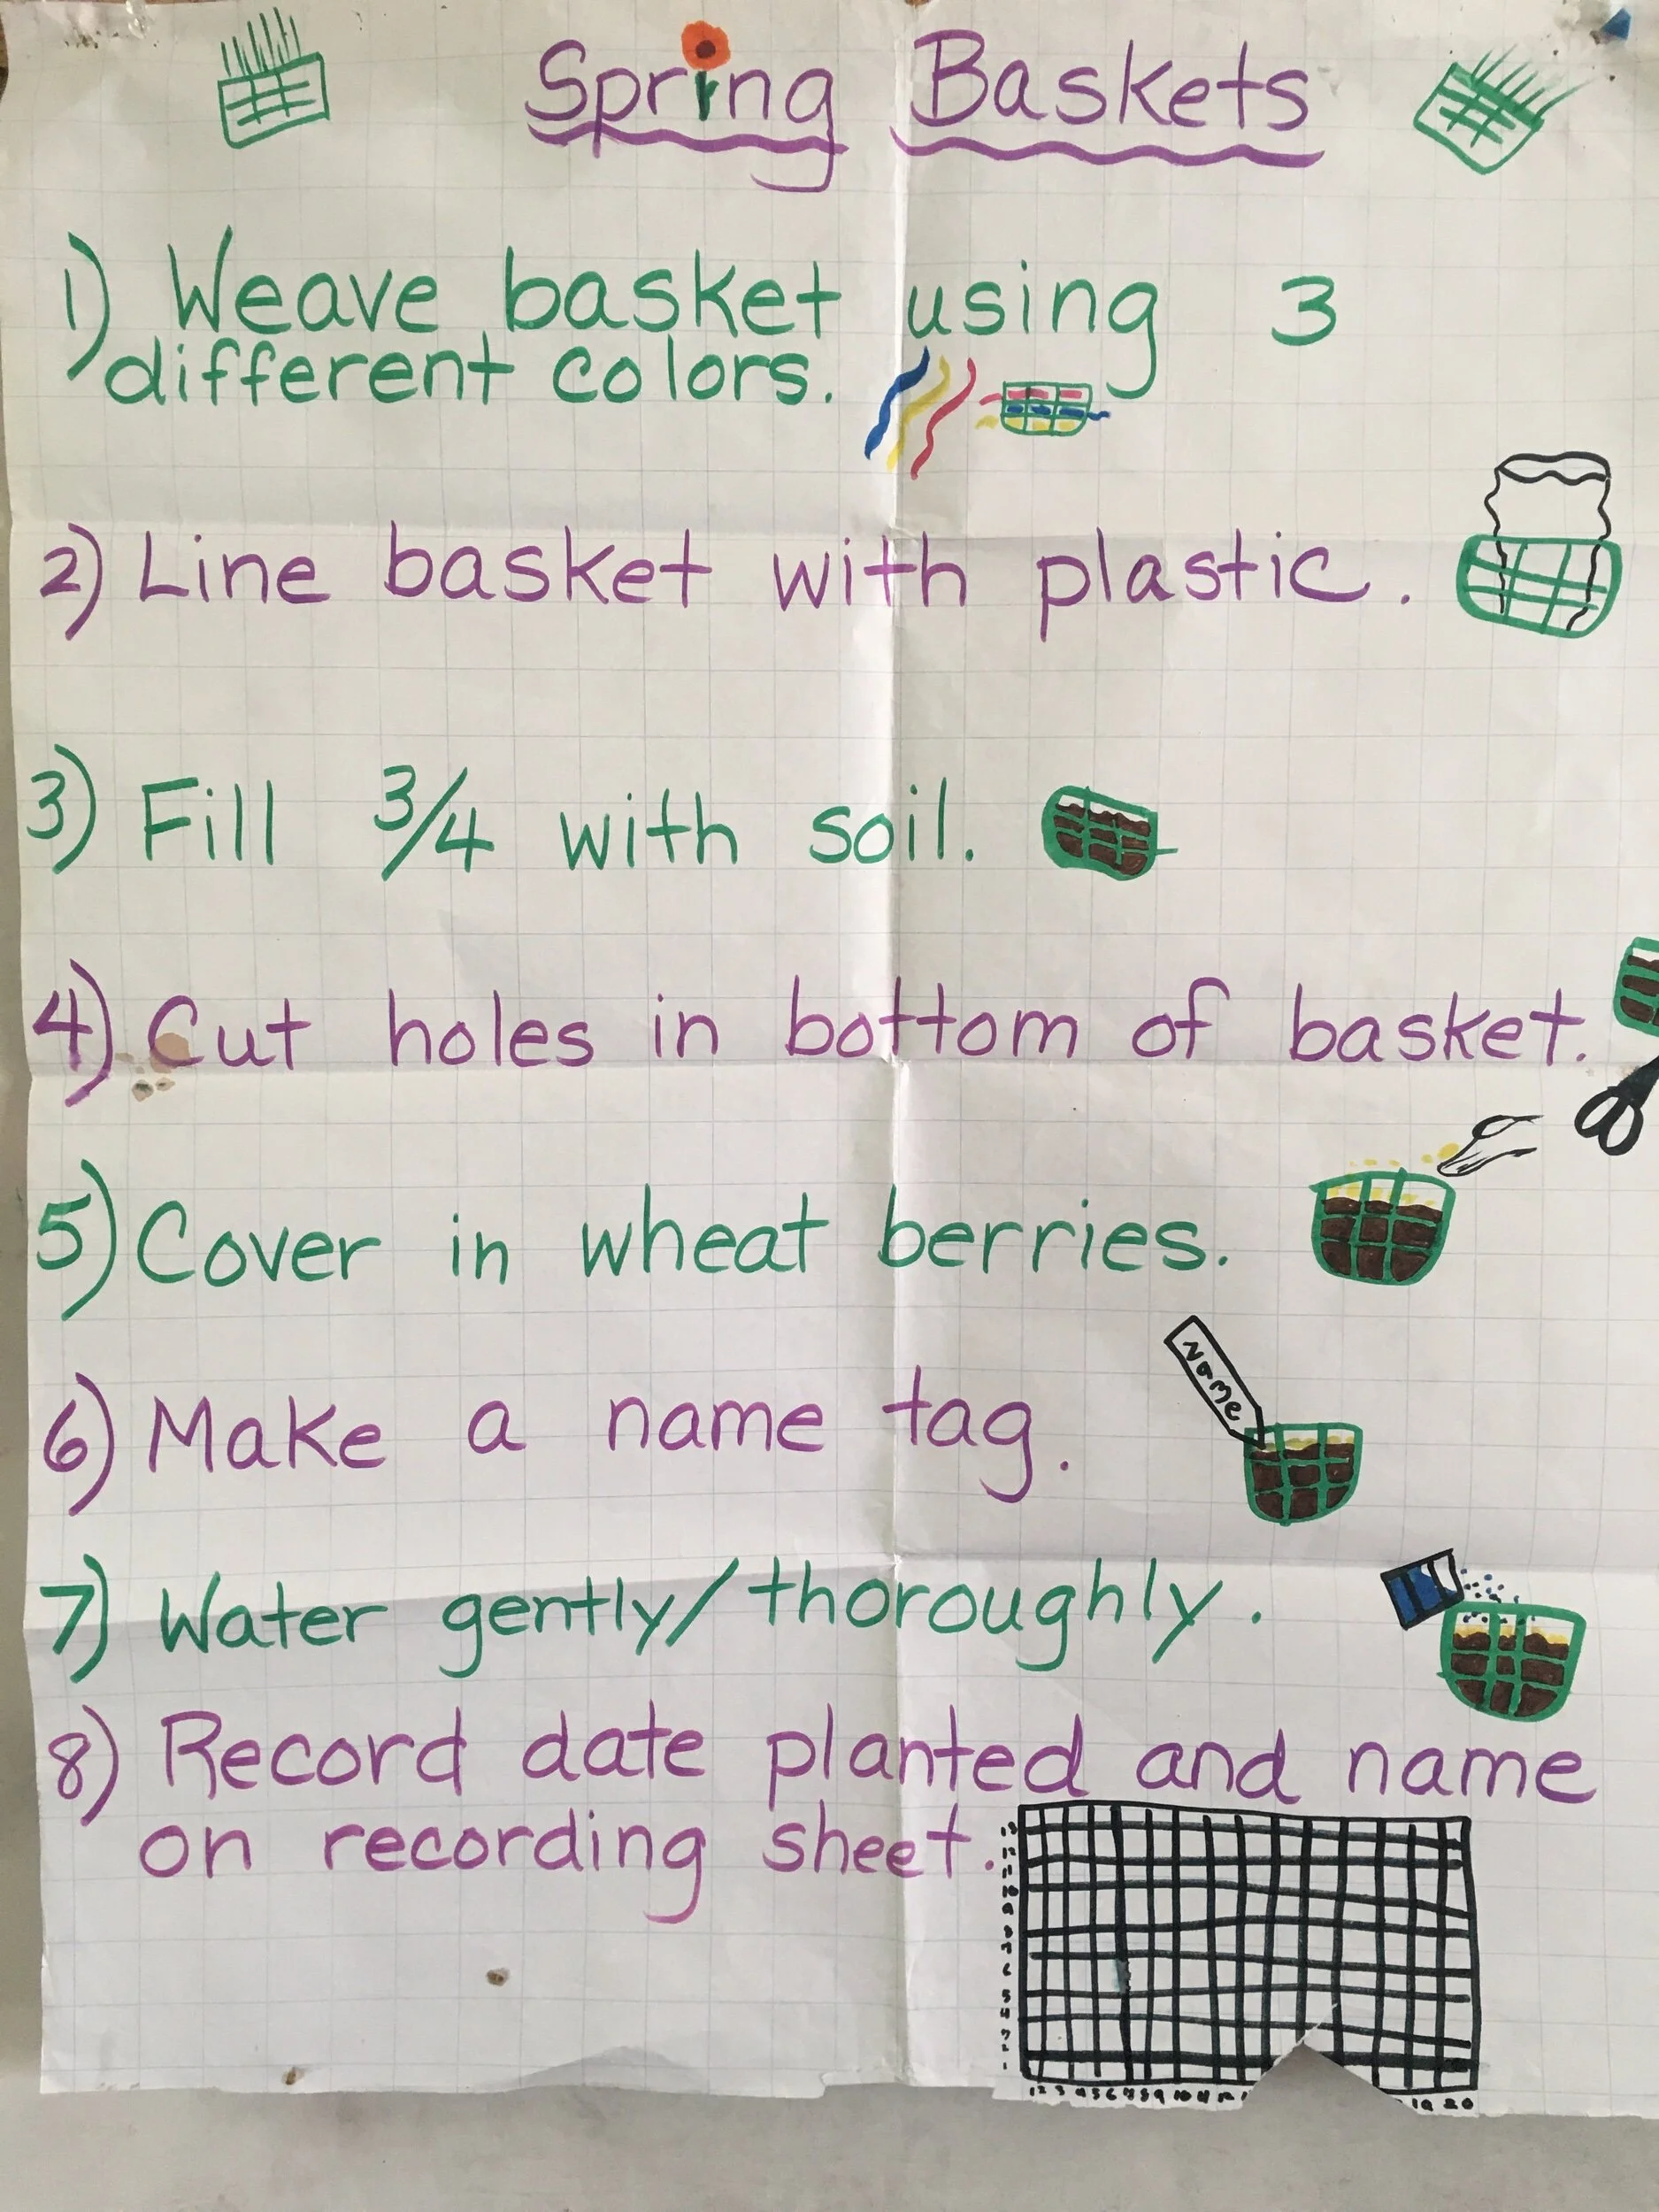 Spring Baskets
1) Weave basket using 3
different colors.
2) Line basket with plastic.
3) Fill 3/4 with soil.
4) Cut holes in bottom of basket.
5) Cover in wheat berries.
6) Make a name tag.
Name
7) Water gently/thoroughly.
8) Record date planted and name
on recording sheet.